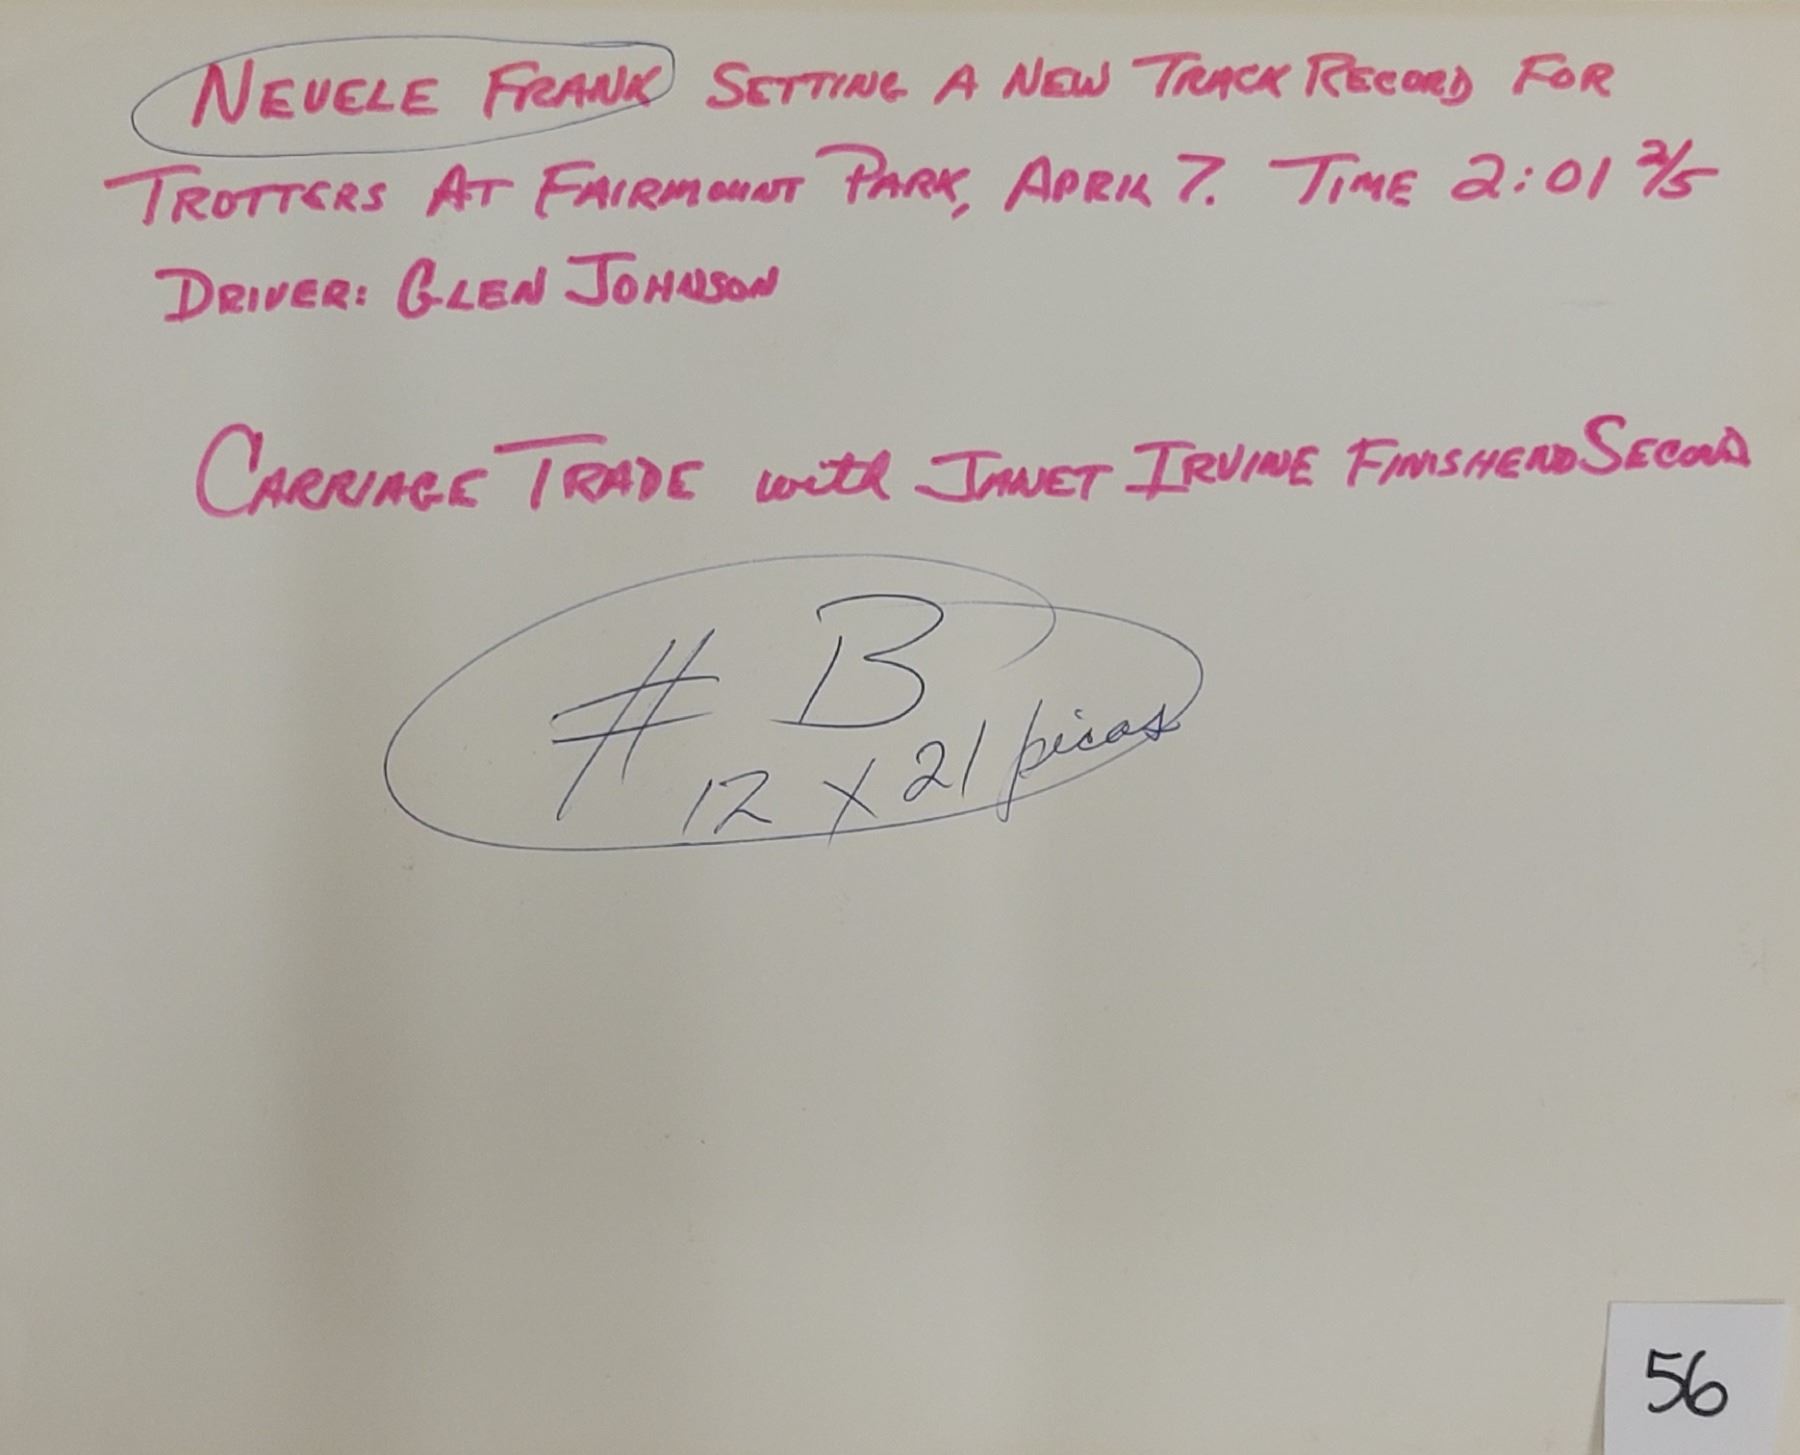 NEVELE FRANK SETTING A NEW TRACK RECORD FOR
TROTTERS AT FAIRMOUNT PARK, APRIL 7. TIME 2:01 2/5
DRIVER: GLEN JOHNSON
CARRIAGE TRADE with JANET IRVINE FINISHEND SECOND
# B
12 x 21 picas
56